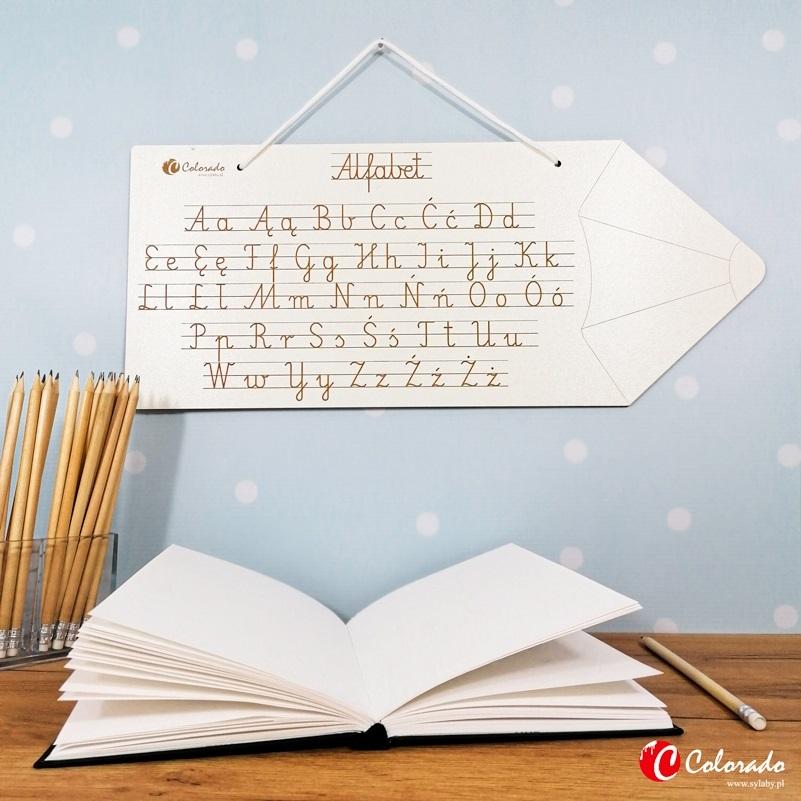 Colorado
Alfabet
A a Ą ą B b C c Ć ć D d
E e Ę ę F f G g H h I i J j K k
L l Ł ł M m N n Ń ń O o Ó ó
P p R r S s Ś ś T t U u
W w Y y Z z Ź ź Ż ż
C Colorado
www.sylaby.pl